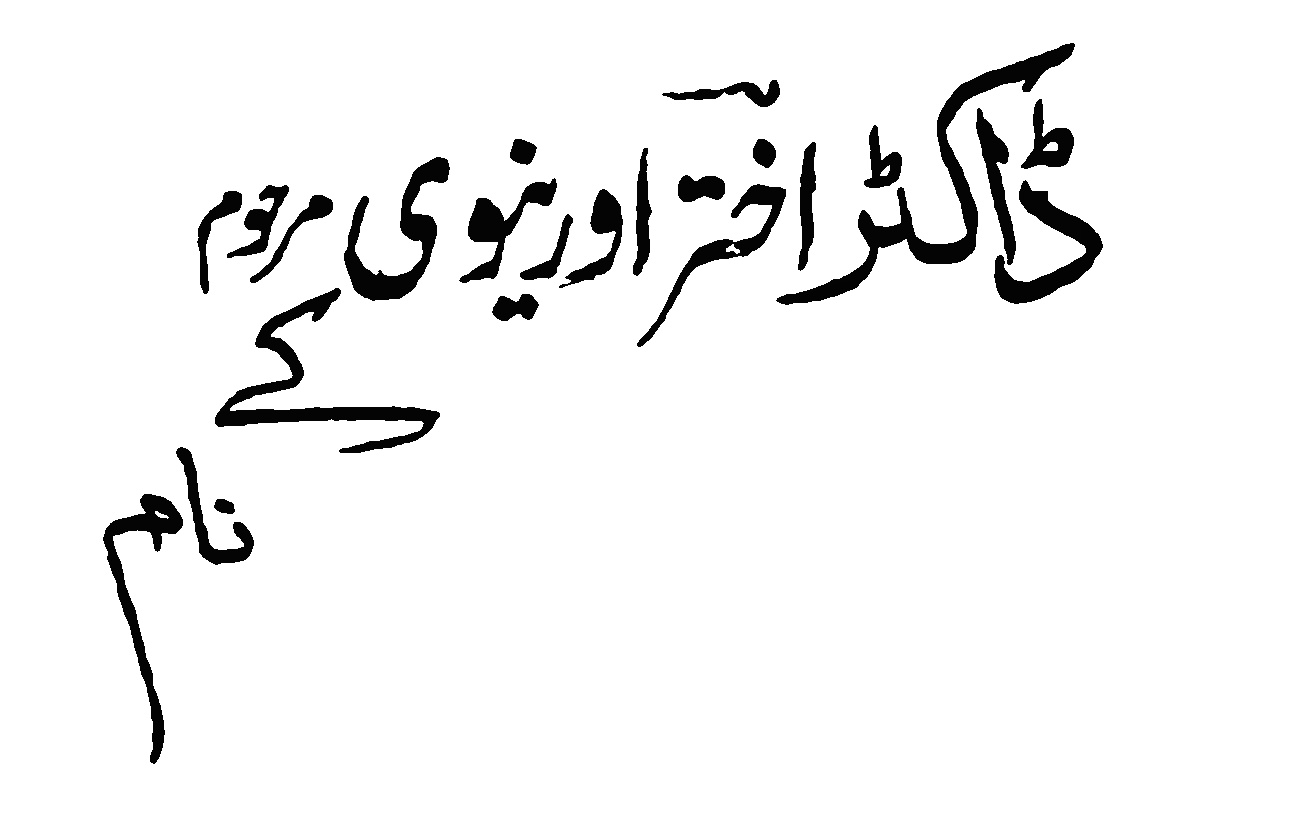 ڈاکٹر اخترؔ اورینوی مرحوم
کے
نام